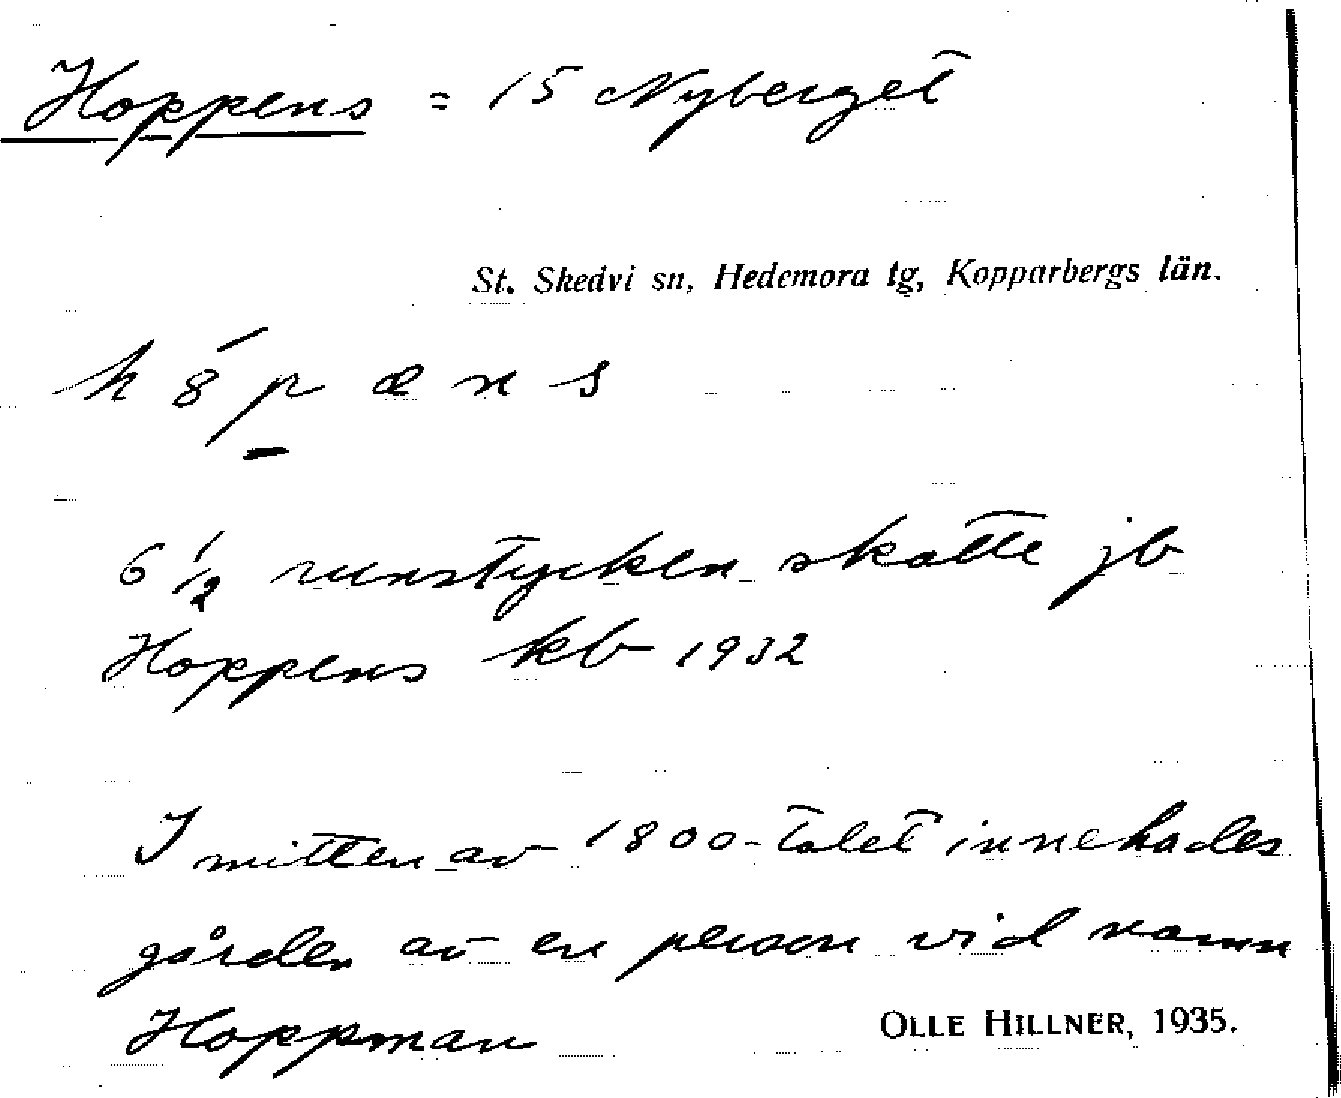 Hoppens = 15 Nyberget
St. Skedvi sn, Hedemora tg, Kopparbergs län.
6 1/2 runstycken skatte jb
Hoppens kb 1932
I mitten av 1800-talet innehades
gården av en person vid namn
Hoppman
OLLE HILLNER, 1935.